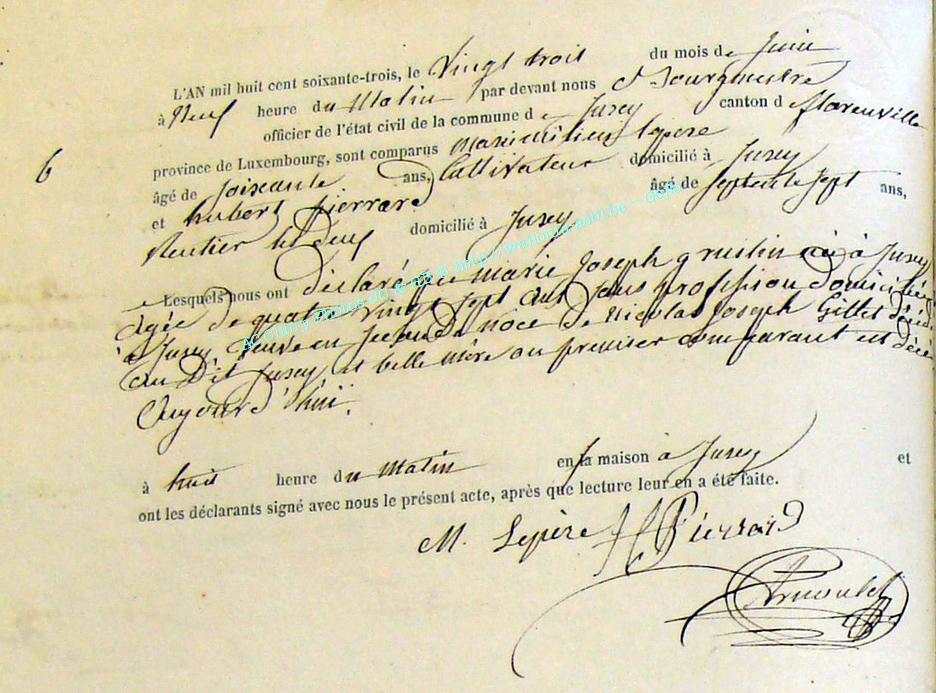 L'AN mil huit cent soixante-trois, le Vingt trois du mois de Juin
à Neuf heure du Matin par devant nous Bourgmestre
officier de l'état civil de la commune de Jusey canton de florenville
6
province de Luxembourg, sont comparus Maximilien Lepere
âgé de Soixante ans, Cultivateur domicilié à Jusey
et hubert pierrard âgé de Septente Sept ans,
Rentier domicilié à Jusey
Lesquels nous ont déclaré que Marie Joseph née à Jusey
agée de quatre vingt Sept ans Sans profession domiciliée
à Jusey Veuve en Seconde noce de Nicolas Joseph Gillet
au Dit Jusey et belle mère au premier comparant est
Aujourd'hui.
à huit heure du Matin en sa maison à Jusey et
ont les déclarants signé avec nous le présent acte, après que lecture leur en a été faite.
M. Lepère H Pierrard
Arnould